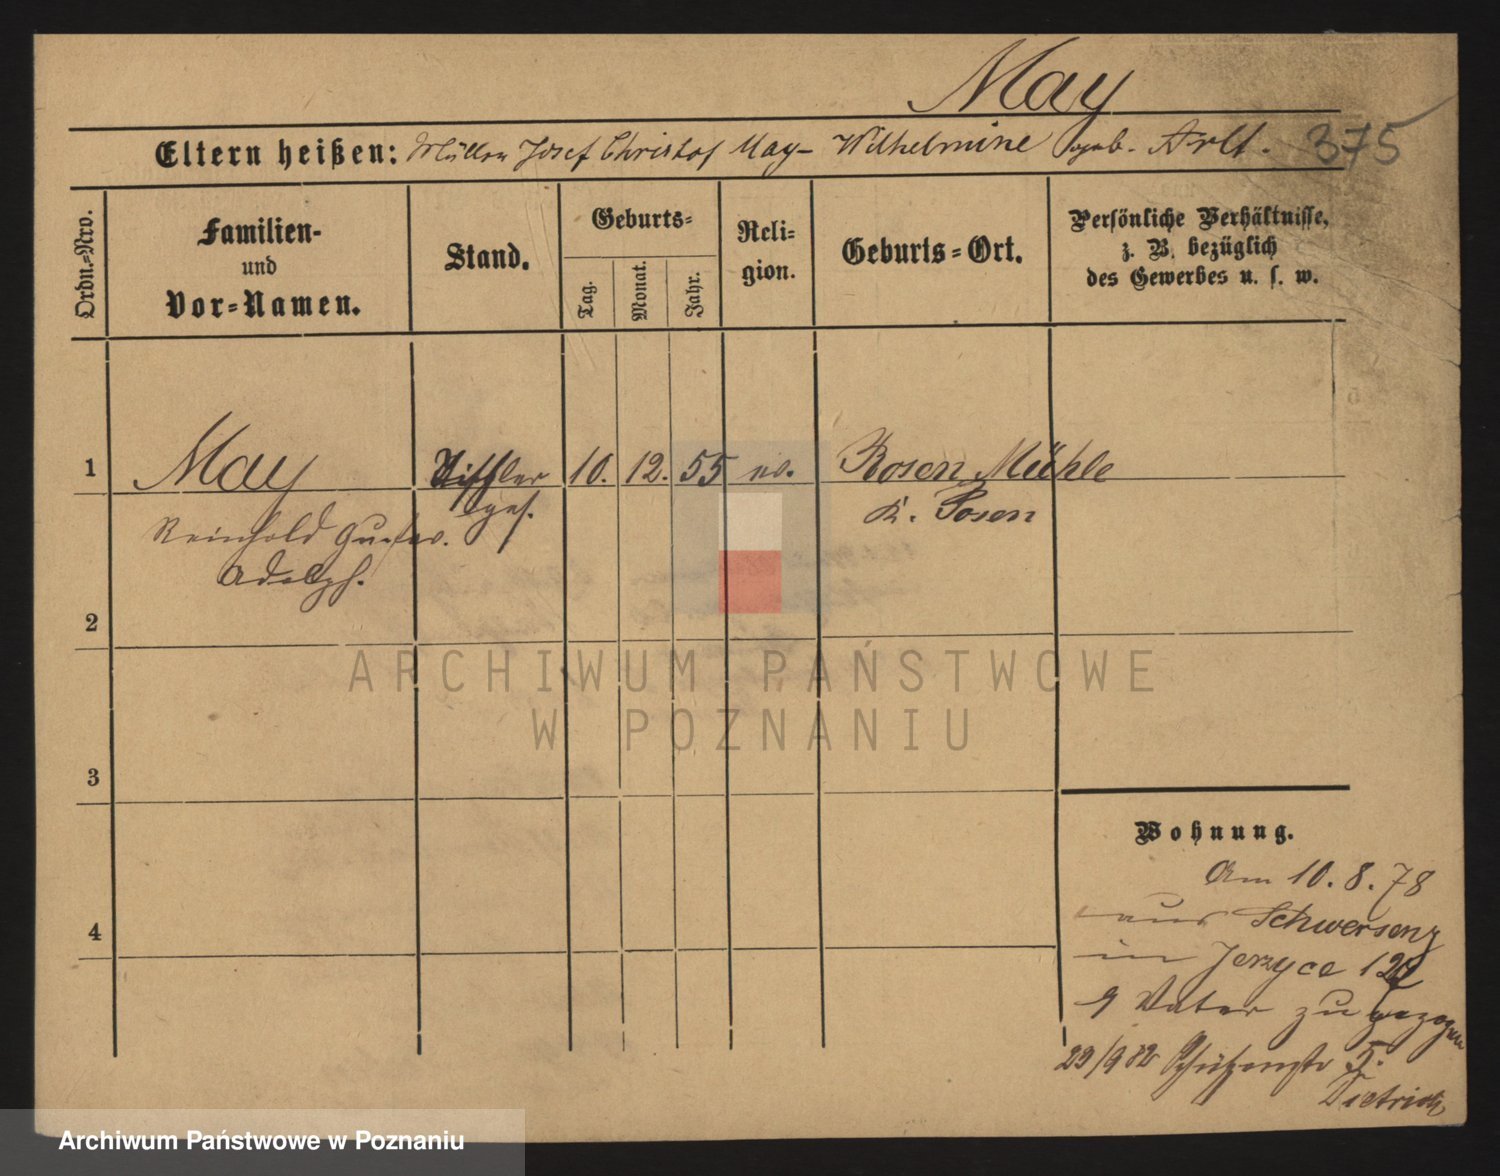 May
Eltern heißen: Müller Josef Christof May - Wilhelmine geb. Arlt. 375
Ordn.-Nro.
Familien-
und
Vor-Namen.
Stand.
Geburts-
Tag.
Monat.
Jahr.
Reli-
gion.
Geburts-Ort.
Persönliche Verhältnisse,
z. B. bezüglich
des Gewerbes u. s. w.
1
May
Tischler 10. 12. 55 ev. Rosen Mühle
ges. K. Posen
Reinhold Gustav.
Adolph.
2
ARCHIWUM PAŃSTWOWE
W POZNANIU
3
Wohnung.
Am 10. 8. 78
aus Schwersenz
in Jerzyce
Vater zu gezogen
29/9 82 Schützenstr 5.
Dietrich
4
Archiwum Państwowe w Poznaniu